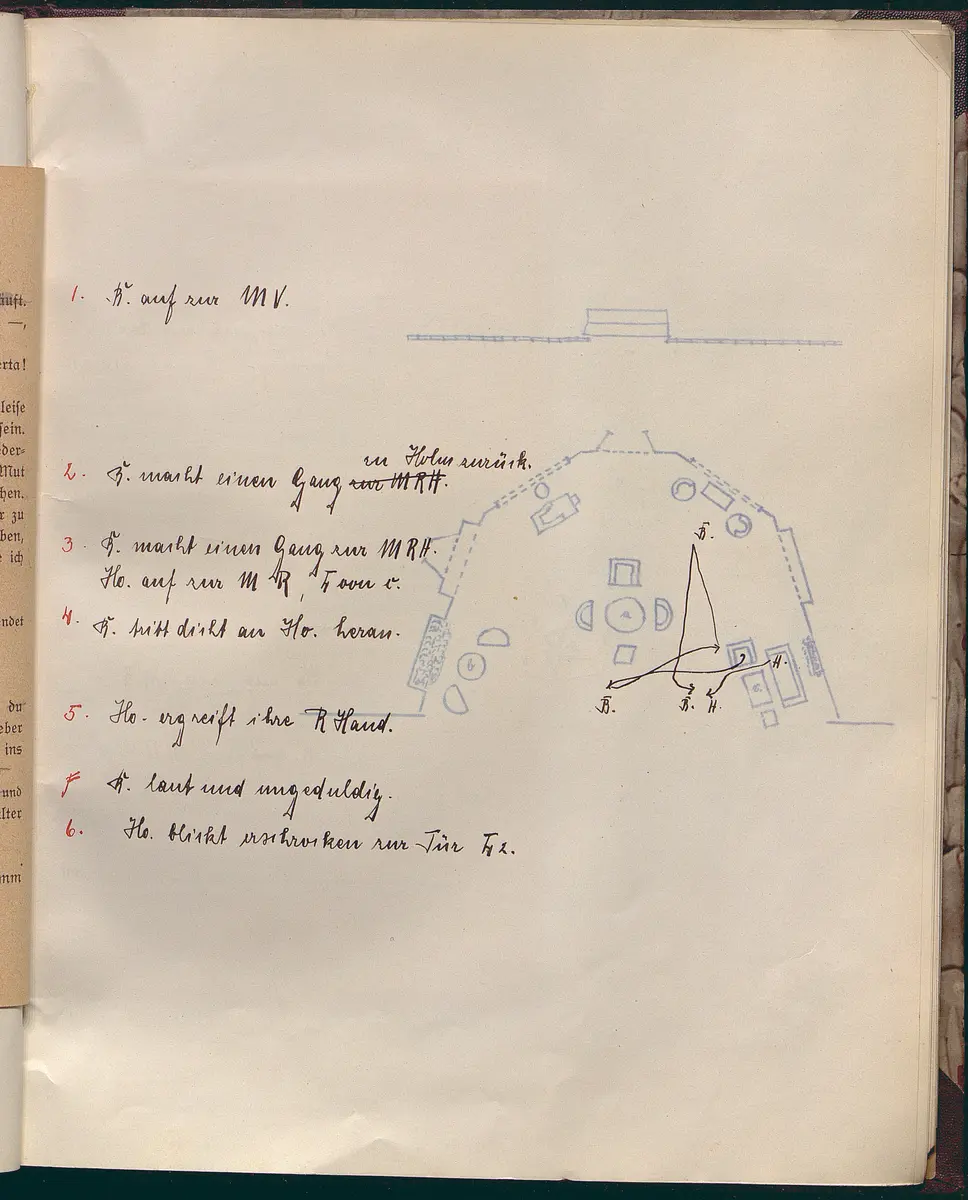 äuft.
—,
erta!
leise
sein.
eder-
Mut
hen.
r zu
ben,
e ich
ndet
du
eber
ins
—
und
lter
mm
1. K. auf zur MV.
zu Holm zurück.
2. K. macht einen Gang zur MRH.
3. K. macht einen Gang zur MRH.
Ho. auf zur M R, von c.
4. K. tritt dicht an Ho. heran.
5. Ho. ergreift ihre R Hand.
K. laut und ungeduldig.
6. Ho. blickt erschrocken zur Tür
K.
a
H.
b
c
K. K. H.